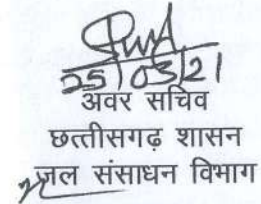 25/03/21
अवर सचिव
छत्तीसगढ़ शासन
जल संसाधन विभाग